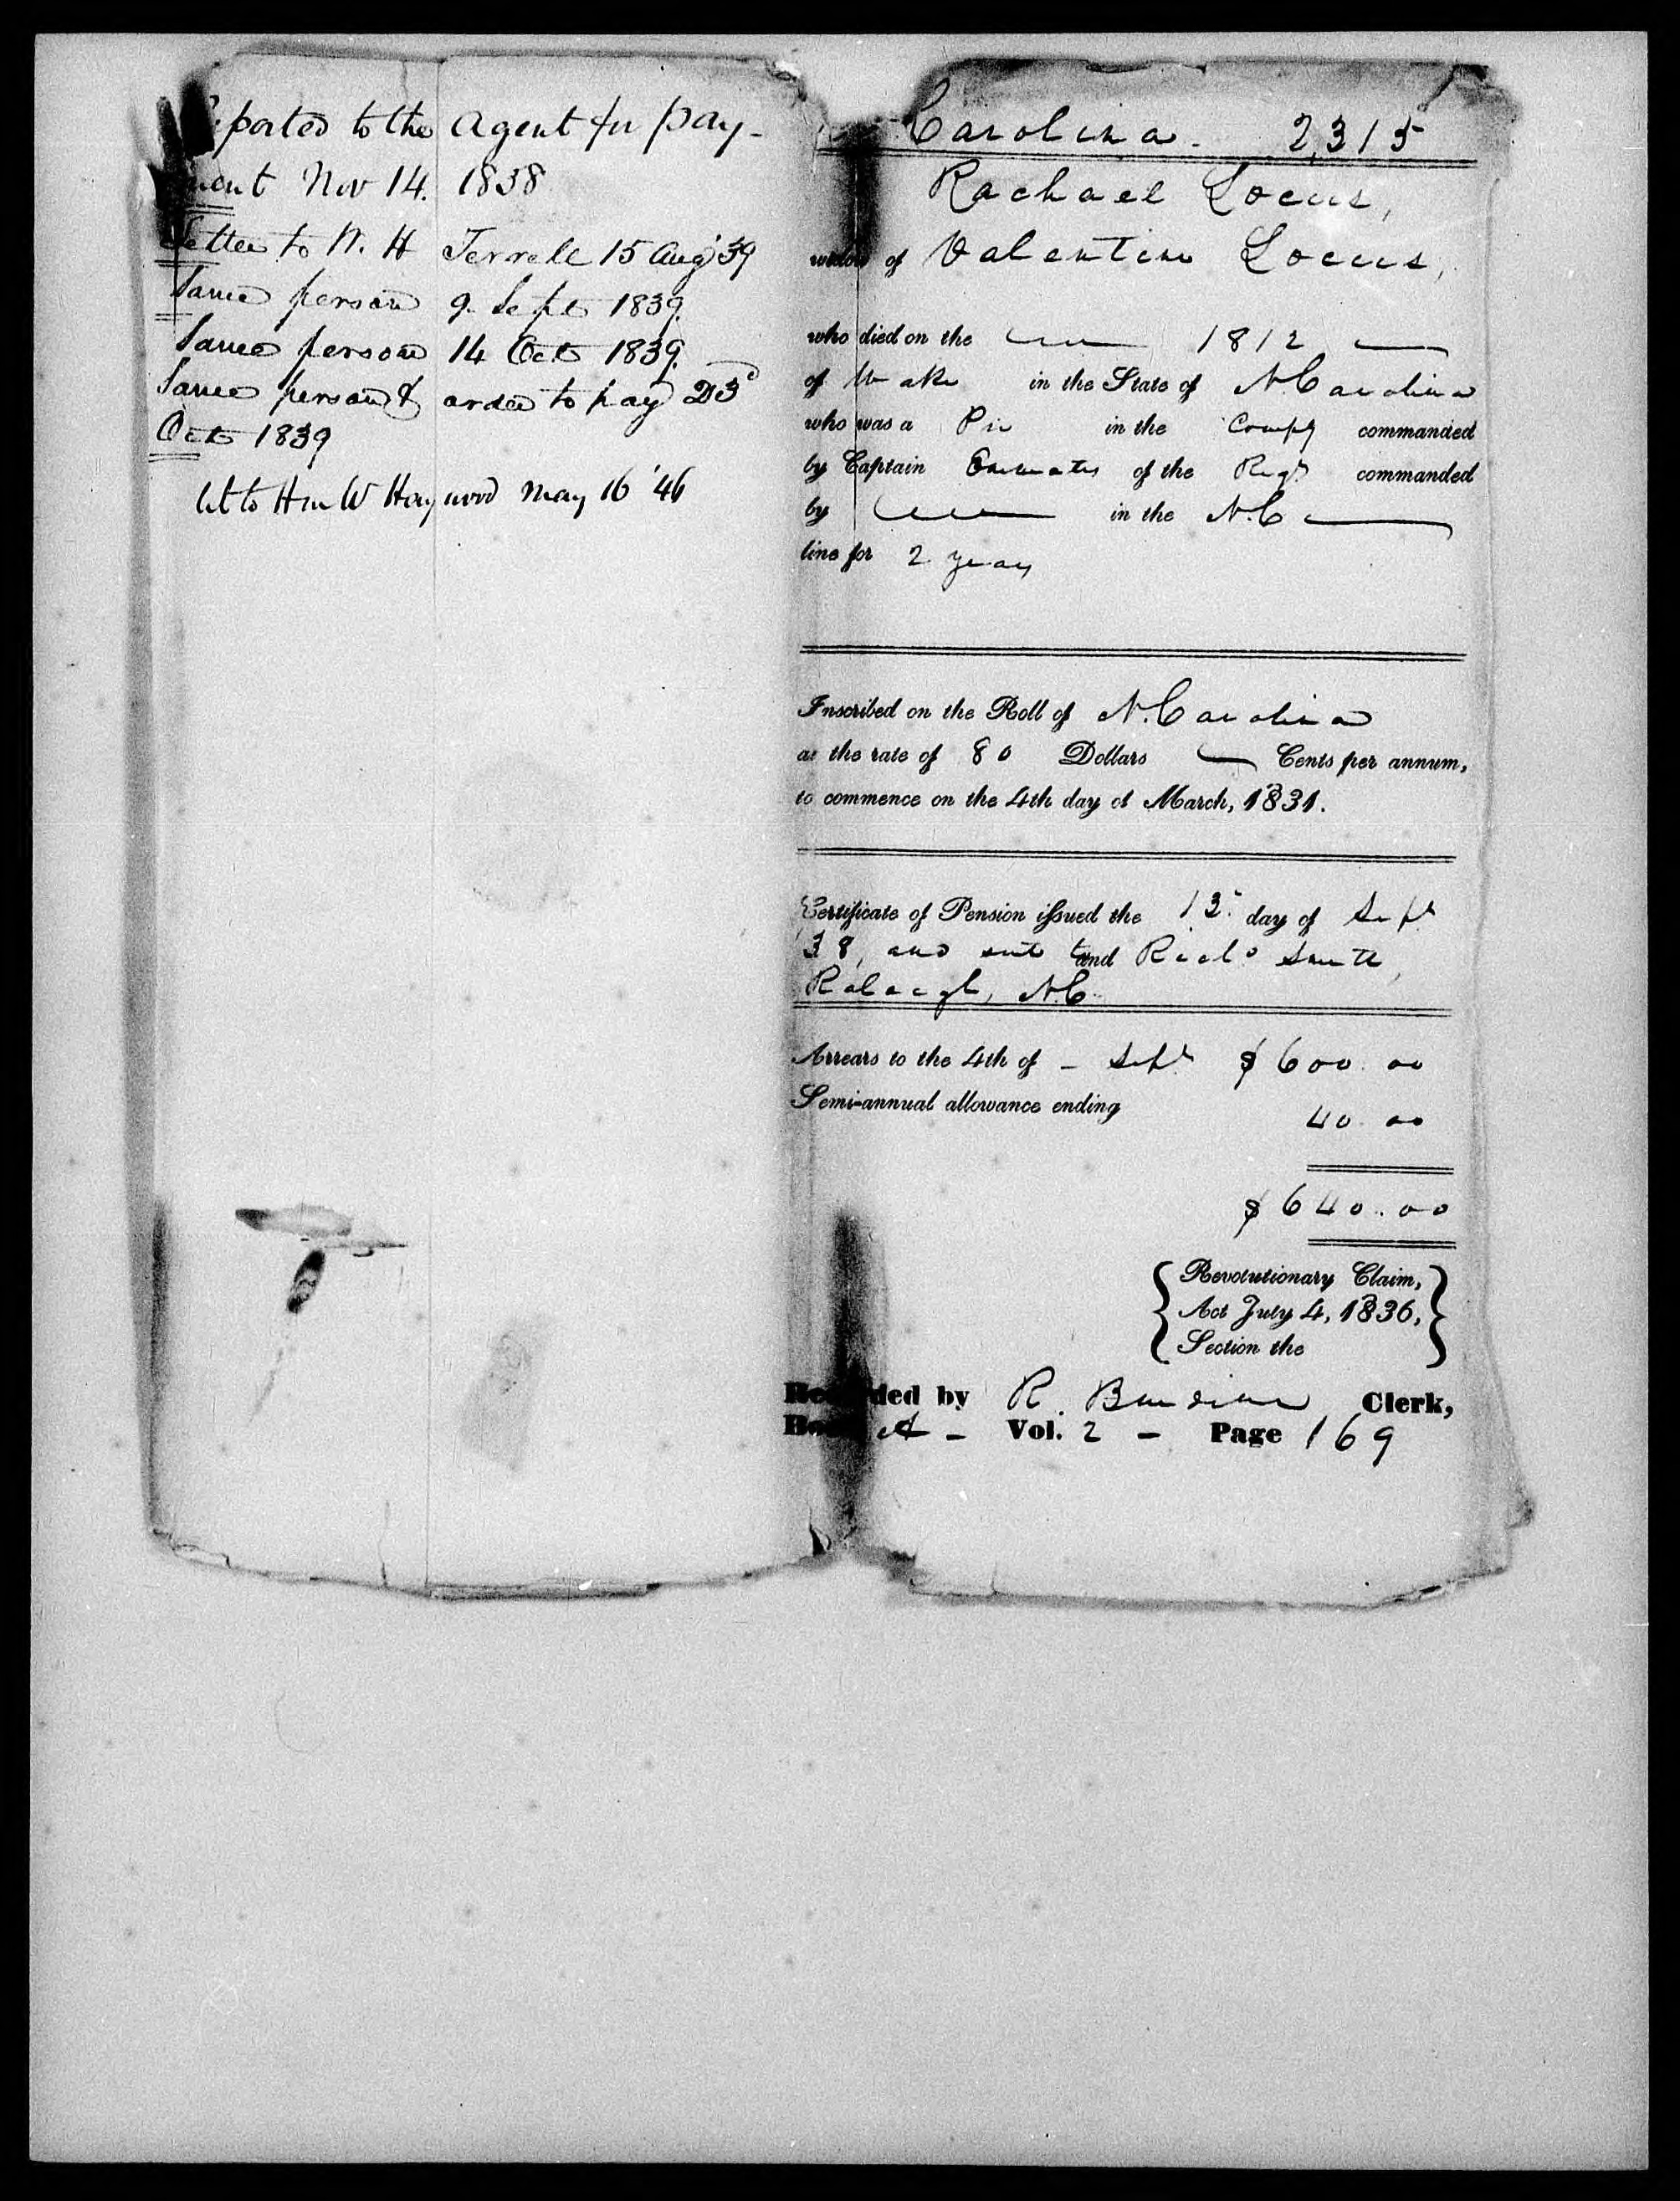 ported to the Agent for pay-
ment Nov 14. 1838
Letter to W. H Terrell 15 Aug '39
Same person 9. Sept 1839.
Same person 14 Oct 1839.
Same person & order to pay 23d
Oct 1839
let to Hon W Haywood May 16 '46
Carolina. 2,315
Rachael Locus,
widow of Valentine Locus,
who died on the 1812
of Wake in the State of N. Carolina
who was a Pri in the Compy commanded
by Captain of the Regt commanded
by in the N.C
line for 2 years
Inscribed on the Roll of N. Carolina
at the rate of 80 Dollars Cents per annum,
to commence on the 4th day of March, 1831.
Certificate of Pension issued the 13 day of Sept
38, and sent to Richd Smith,
Raleigh, N.C.
Arrears to the 4th of - Sept $ 600.00
Semi-annual allowance ending
40.00
$ 640.00
Revolutionary Claim,
Act July 4, 1836,
Section the
Recorded by R. Clerk,
Book A - Vol. 2 - Page 169